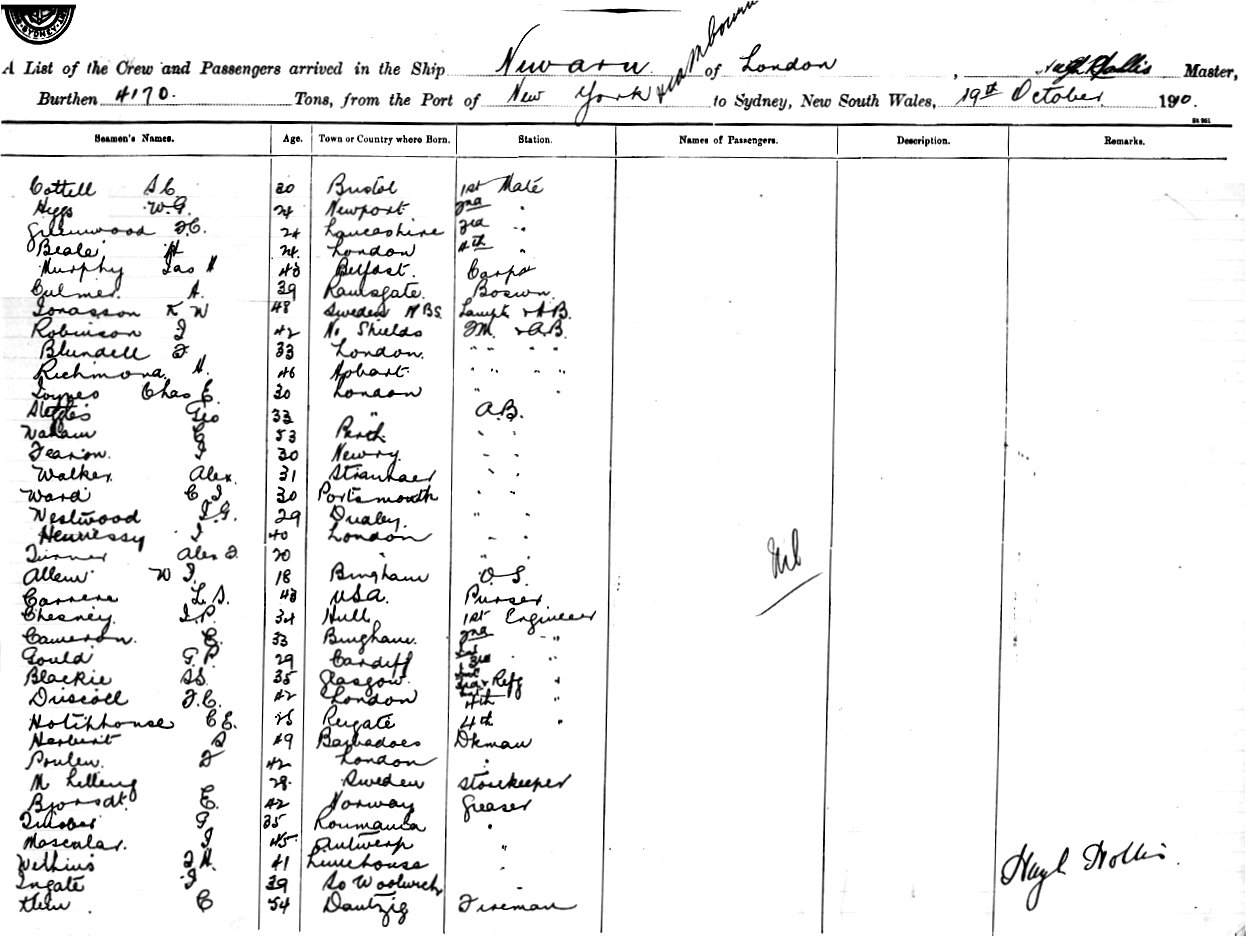 SYDNEY
A List of the Crew and Passengers arrived in the Ship of London, Hugh Hollis Master,
Burthen 4170. Tons, from the Port of New York & via Melbourne to Sydney, New South Wales, 19th October 1910.
St 951
Seamen's Names. Age. Town or Country where Born. Station. Names of Passengers. Description. Remarks.
Cottell A C 30 Bristol 1st Mate
Higgs W.G. 24 Newport 2nd "
Greenwood F.C. 24 Lancashire 3rd "
Beale H 24 London 4th "
Murphy Jas H 48 Belfast. Carpr
Culmer. A. 39 Ramsgate. Boswn.
Jonasson K W 48 Sweden NBS. Lampt & AB.
Robinson J 42 No Shields & A.B.
Blundell F 33 London. " " "
Richmond. H. 46 " " " "
Chas E. 30 London " "
Geo 33 " A.B.
53 Perth. " "
Fearon. J 30 Newry. " "
Walker. Alex. 31 Stranraer " "
Ward C J 30 Portsmouth " "
Westwood J.G. 29 " "
Hennessy J 40 London " "
Turner Alex J. 20 " " "
Allen W J. 18 O S.
Carrere L. S. 43 USA. Purser
Chesney. J.P. 34 Hull 1st Engineer
Cameron. C. 33 2nd "
Gould G.P. 29 Cardiff 3rd "
Blackie 35 Glasgow. & Refg "
Driscoll J.C. 42 London 4th "
C E. 25 Reigate 4th "
Herbert J 49 Barbadoes Dkman
Poulen. J 42 London "
28. Sweden Storekeeper
E. 42 Norway Greaser
G 35 Roumania "
Mascular. J 45. Antwerp "
J H. 41 Limehouse "
Ingate J 39 So Woolwich "
C 54 Dantzig Fireman
Nil
Hugh Hollis.